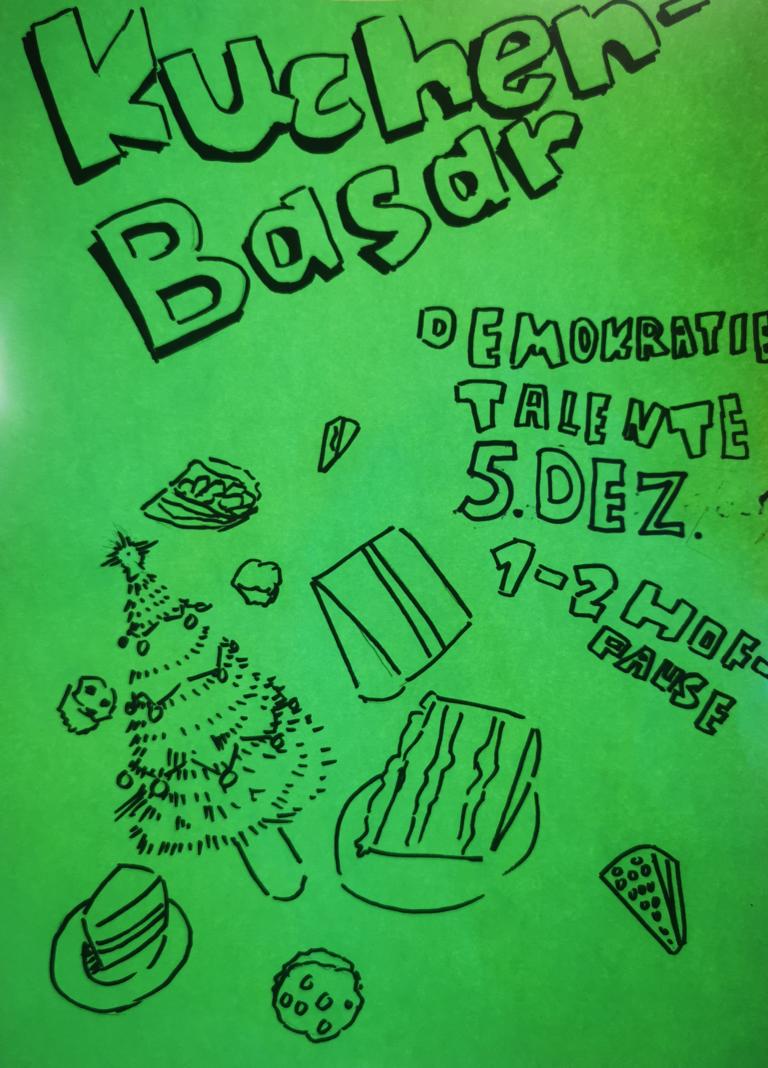 Kuchen-
Basar
DEMOKRATIE
TALENTE
5. DEZ.
1-2 HOF-
PAUSE